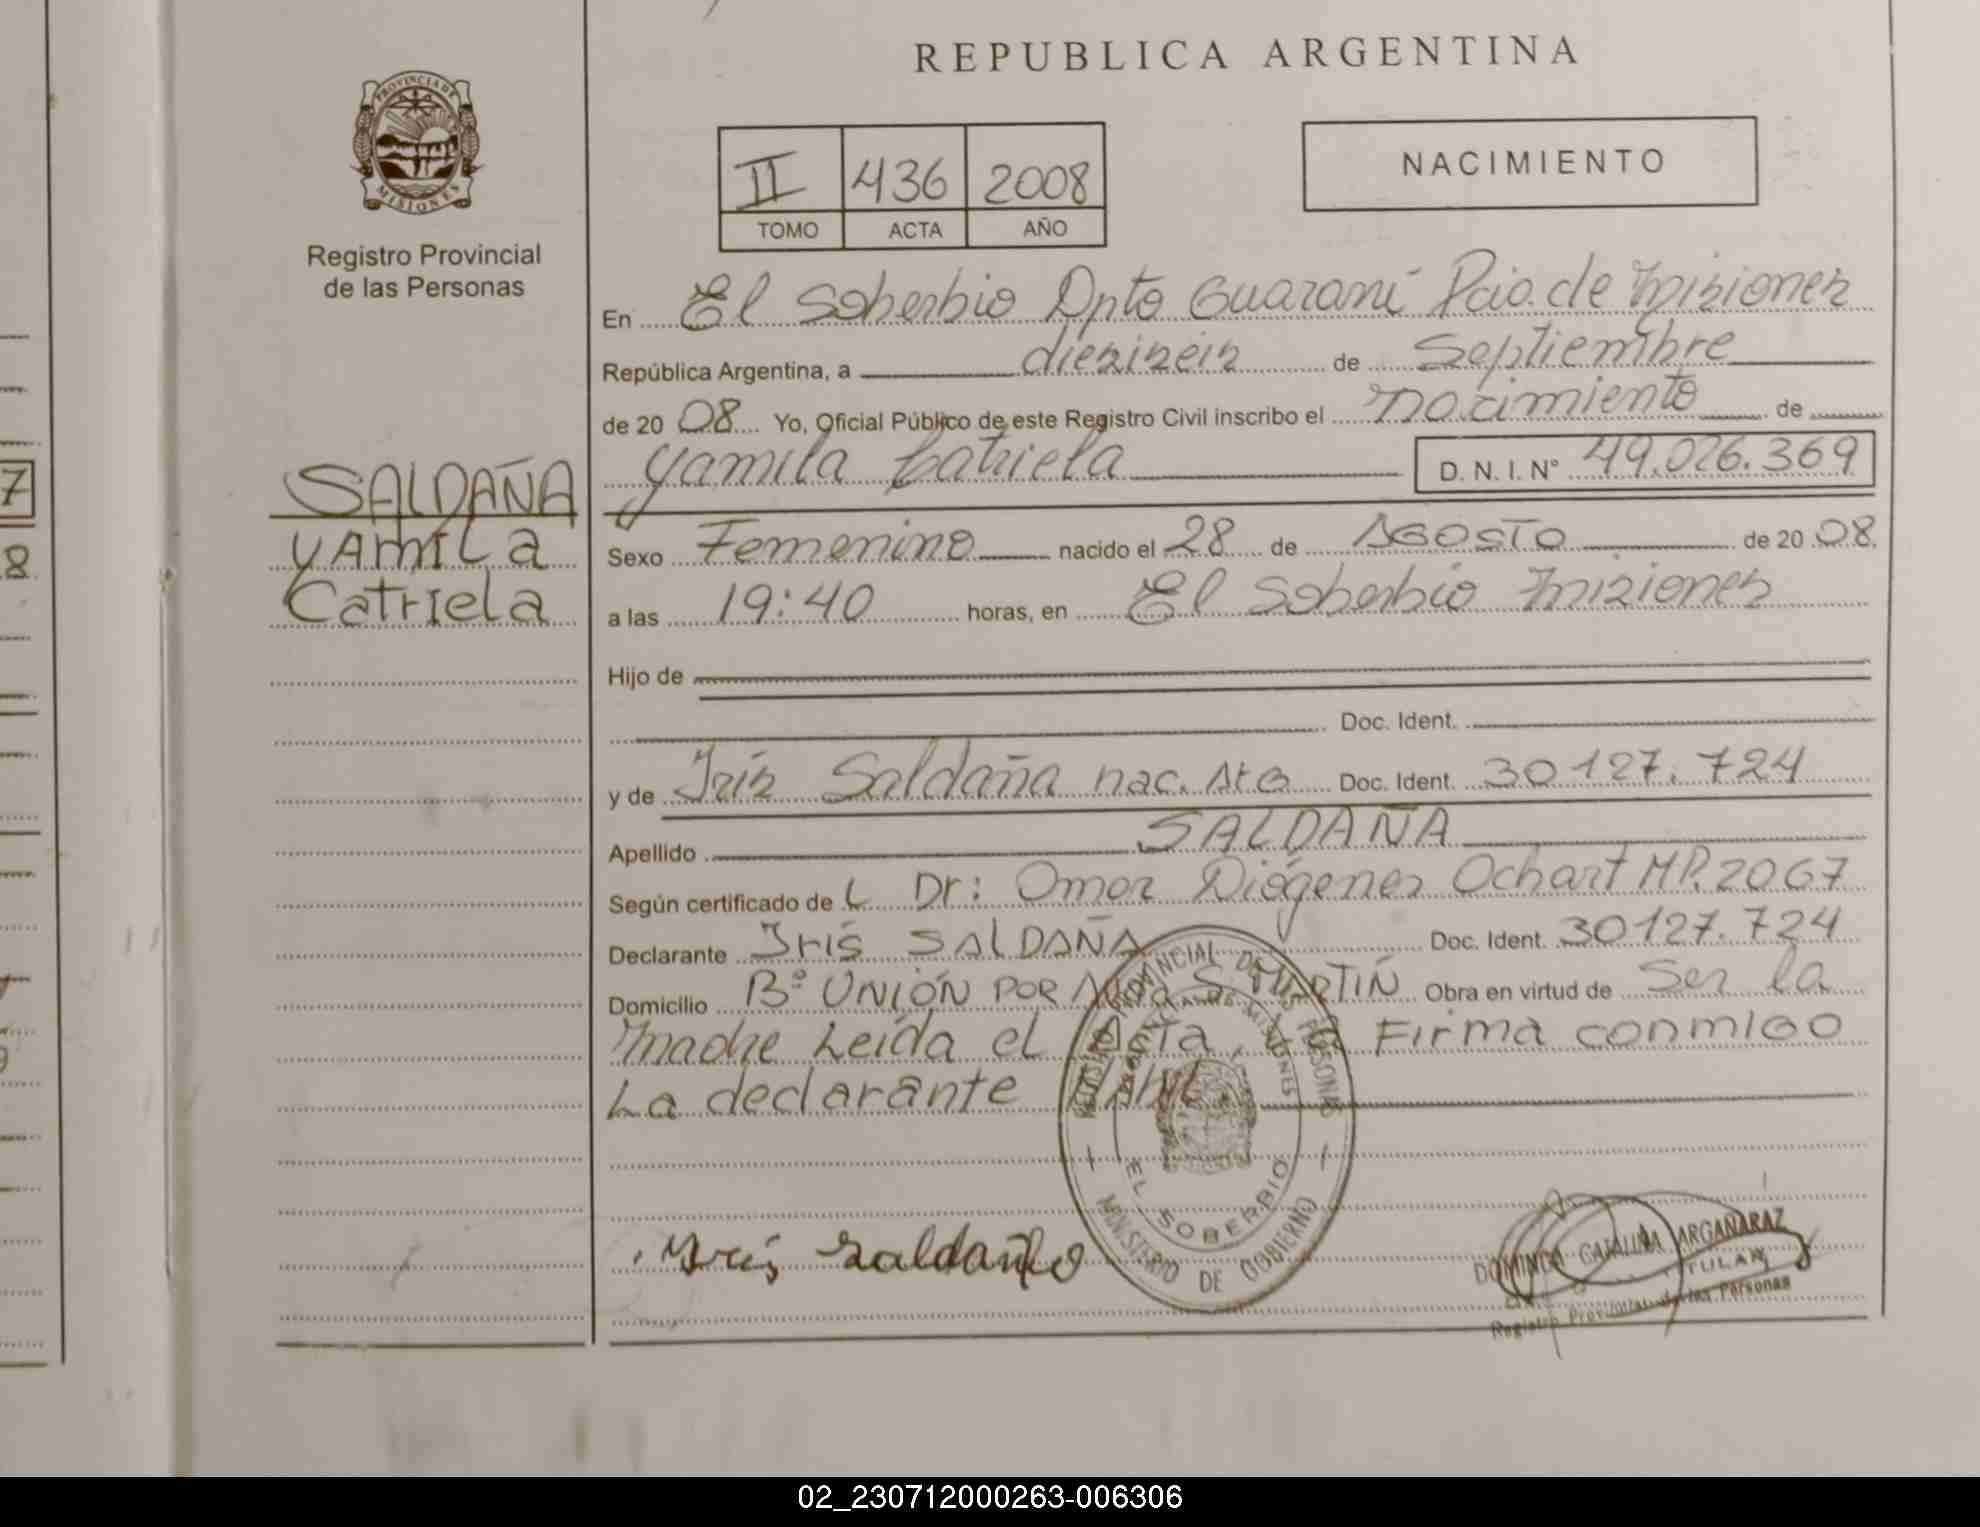 REPUBLICA ARGENTINA
PROVINCIA DE
MISIONES
Registro Provincial
de las Personas
II 436 2008
TOMO ACTA AÑO
NACIMIENTO
En El Soberbio Dpto Guaraní Pcia. de Misiones
República Argentina, a dieziseis de Septiembre
de 20 08 Yo, Oficial Público de este Registro Civil inscribo el nacimiento de
Yamila Catriela D. N. I. Nº 49.026.369
SALDAÑA
YAMILA
Catriela
Sexo Femenino nacido el 28 de AGOSTO de 20 08
a las 19:40 horas, en El Soberbio Misiones
Hijo de
Doc. Ident.
y de Iris Saldaña nac. Doc. Ident. 30127.724
Apellido SALDAÑA
Según certificado de L Dr: Omar Diógenes Ochart MP. 2067
Declarante Iris SALDAÑA Doc. Ident. 30127.724
Domicilio Bº UNIÓN POR S. MARTIN Obra en virtud de Ser la
Madre Leída el Acta, La Firma conmigo
La declarante
REGISTRO PROVINCIAL DE LAS PERSONAS
PROVINCIA DE MISIONES
EL SOBERBIO
MINISTERIO DE GOBIERNO
Iris Saldaña
CATALINA ARGAÑARAZ
TITULAR
Registro Provincial de las Personas
7
8
02_230712000263-006306